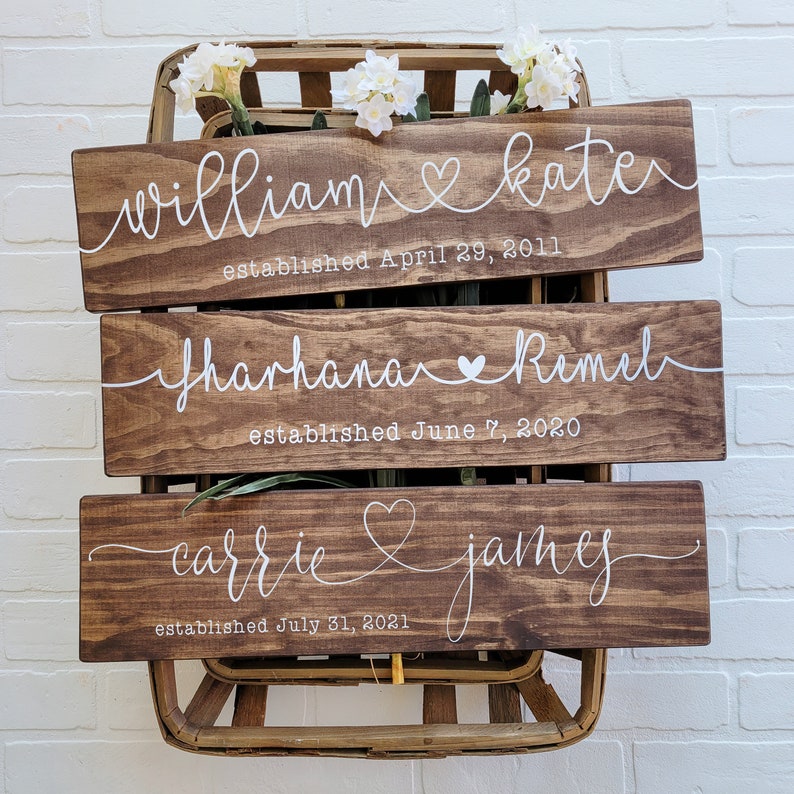 william kate
established April 29, 2011
Jharhana Remel
established June 7, 2020
carrie james
established July 31, 2021